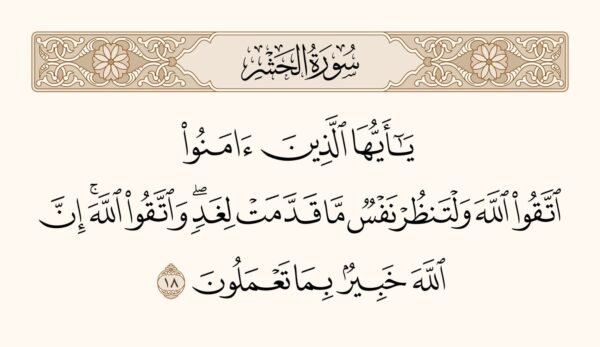 سُورَةُ الحَشْرِ
يَـٰٓأَيُّهَا ٱلَّذِينَ ءَامَنُوا۟
ٱتَّقُوا۟ ٱللَّهَ وَلْتَنظُرْ نَفْسٌ مَّا قَدَّمَتْ لِغَدٍ ۖ وَٱتَّقُوا۟ ٱللَّهَ ۚ إِنَّ
ٱللَّهَ خَبِيرٌۢ بِمَا تَعْمَلُونَ ١٨